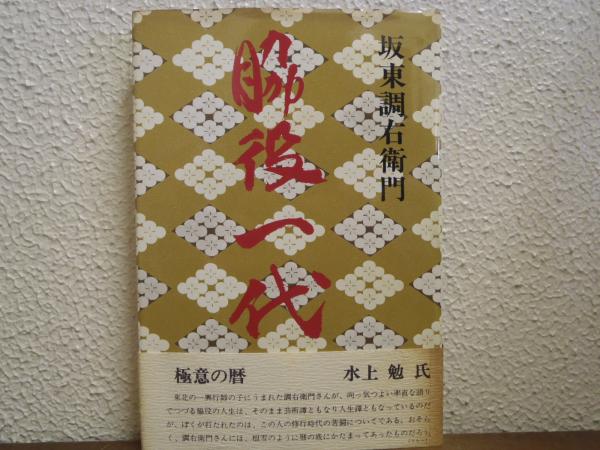 坂東調右衛門
脇役一代
極意の暦
水上 勉 氏
東北の一興行師の子にうまれた調右衛門さんが、向っ気つよい率直な語り
でつづる脇役の人生は、そのまま芸術譚ともなり人生譚ともなっているのだ
が、ぼくが打たれたのは、この人の修行時代の苦闘についてである。おそら
く、調右衛門さんには、根雪のように暦の底にかたまってあったものだろう。